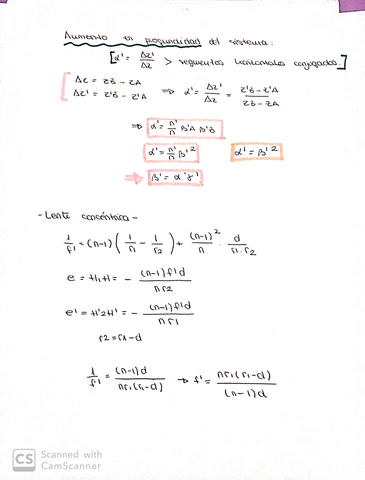 Aumento en profundidad del sistema:
[α' = Δz'/Δz > segmentos horizontales conjugados.]
Δz = zB - zA
Δz' = z'B - z'A ⇒ α' = Δz'/Δz = (z'B - z'A)/(zB - zA)
⇒ α' = n'/n β'A β'B
α' = n'/n β'² α' = β'²
→ β' = α'γ'
- Lente concéntrica -
1/f' = (n-1) (1/r1 - 1/r2) + (n-1)²/n · d/(r1·r2)
e = H1H = - (n-1)f'd/(n r2)
e' = H'2H' = - (n-1)f'd/(n r1)
r2 = r1 - d
1/f' = (n-1)d/(n r1(r1-d)) → f' = n r1(r1-d)/((n-1)d)
CS Scanned with
CamScanner